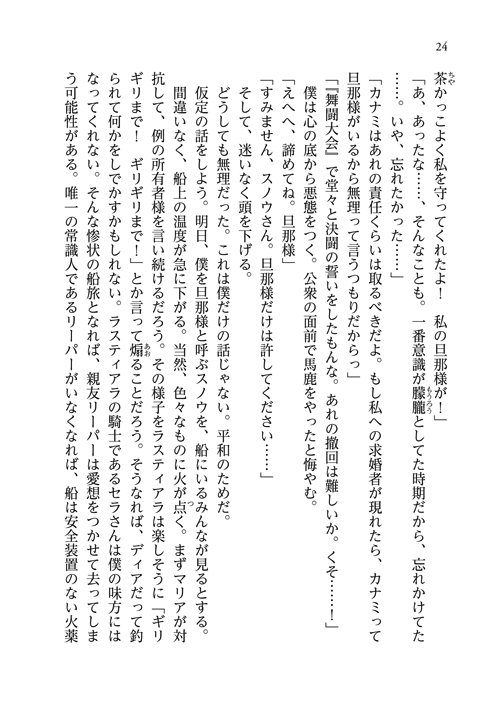 24
茶かっこよく私を守ってくれたよ！　私の旦那様が！」
「あ、あったな……、そんなことも。一番意識が朦朧としてた時期だから、忘れかけてた
……。いや、忘れたかった……」
「カナミはあれの責任くらいは取るべきだよ。もし私への求婚者が現れたら、カナミって
旦那様がいるから無理って言うつもりだからっ」
「『舞闘大会』で堂々と決闘の誓いをしたもんな。あれの撤回は難しいか。くそ……！」
僕は心の底から悪態をつく。公衆の面前で馬鹿をやったと悔やむ。
「えへへ、諦めてね。旦那様」
「すみません、スノウさん。旦那様だけは許してください……」
そして、迷いなく頭を下げる。
どうしても無理だった。これは僕だけの話じゃない。平和のためだ。
仮定の話をしよう。明日、僕を旦那様と呼ぶスノウを、船にいるみんなが見るとする。
間違いなく、船上の温度が急に下がる。当然、色々なものに火が点く。まずマリアが対
抗して、例の所有者様を言い続けるだろう。その様子をラスティアラは楽しそうに「ギリ
ギリまで！　ギリギリまで！」とか言って煽ることだろう。そうなれば、ディアだって釣
られて何かをしでかすかもしれない。ラスティアラの騎士であるセラさんは僕の味方には
なってくれない。そんな惨状の船旅となれば、親友リーパーは愛想をつかせて去ってしま
う可能性がある。唯一の常識人であるリーパーがいなくなれば、船は安全装置のない火薬